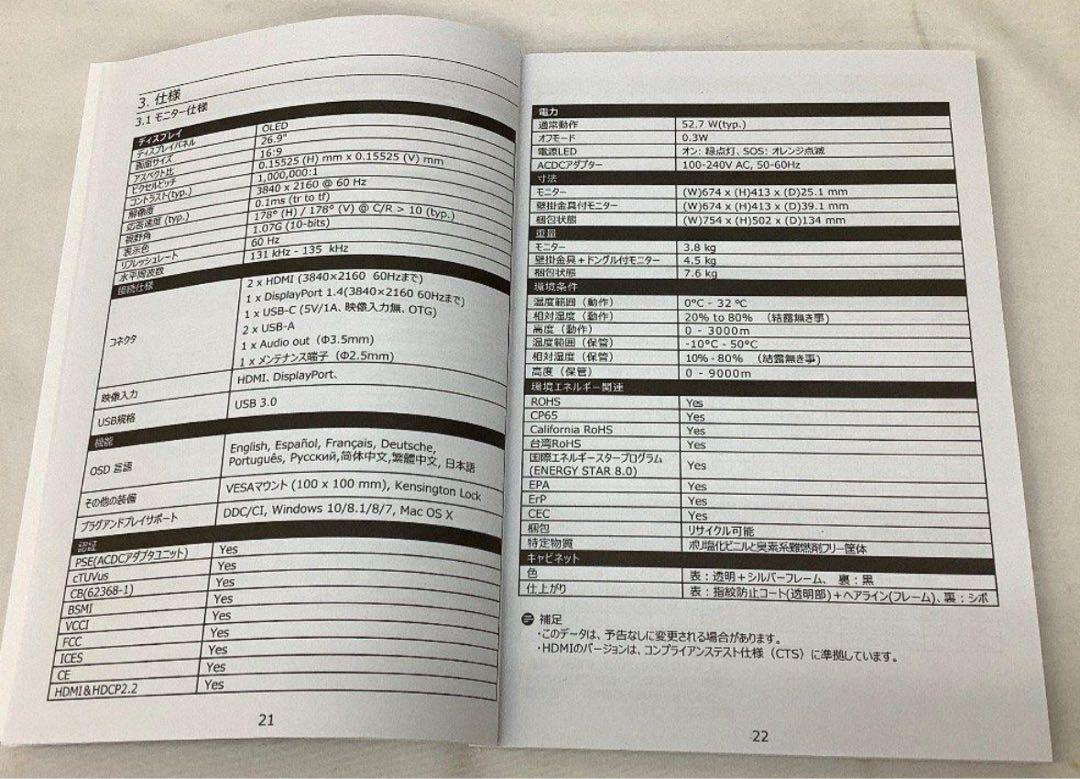 3. 仕様
3.1 モニター仕様
ディスプレイ
ディスプレイパネル OLED
画面サイズ 26.9"
アスペクト比 16:9
ピクセルピッチ 0.15525 (H) mm x 0.15525 (V) mm
コントラスト(typ.) 1,000,000:1
解像度 3840 x 2160 @ 60 Hz
応答速度 (typ.) 0.1ms (tr to tf)
視野角 178° (H) / 178° (V) @ C/R > 10 (typ.)
表示色 1.07G (10-bits)
リフレッシュレート 60 Hz
水平周波数 131 kHz - 135 kHz
接続仕様
コネクタ
2 x HDMI (3840×2160 60Hzまで)
1 x DisplayPort 1.4(3840×2160 60Hzまで)
1 x USB-C (5V/1A、映像入力無、OTG)
2 x USB-A
1 x Audio out（Φ3.5mm）
1 x メンテナンス端子（Φ2.5mm）
映像入力 HDMI、DisplayPort、
USB規格 USB 3.0
機能
OSD 言語
English, Español, Français, Deutsche,
Português, Русский,简体中文,繁體中文, 日本語
その他の装備 VESAマウント (100 x 100 mm), Kensington Lock
プラグアンドプレイサポート DDC/CI, Windows 10/8.1/8/7, Mac OS X
認証
PSE(ACDCアダプタユニット) Yes
cTUVus Yes
CB(62368-1) Yes
BSMI Yes
VCCI Yes
FCC Yes
ICES Yes
CE Yes
HDMI＆HDCP2.2 Yes
21
電力
通常動作 52.7 W(typ.)
オフモード 0.3W
電源LED オン: 緑点灯、SOS: オレンジ点滅
ACDCアダプター 100-240V AC, 50-60Hz
寸法
モニター (W)674 x (H)413 x (D)25.1 mm
壁掛金具付モニター (W)674 x (H)413 x (D)39.1 mm
梱包状態 (W)754 x (H)502 x (D)134 mm
重量
モニター 3.8 kg
壁掛金具＋ドングル付モニター 4.5 kg
梱包状態 7.6 kg
環境条件
温度範囲（動作） 0°C - 32 °C
相対湿度（動作） 20% to 80% （結露無き事）
高度（動作） 0 - 3000m
温度範囲（保管） -10°C - 50°C
相対湿度（保管） 10% - 80% （結露無き事）
高度（保管） 0 - 9000m
環境エネルギー関連
ROHS Yes
CP65 Yes
California RoHS Yes
台湾RoHS Yes
国際エネルギースタープログラム
(ENERGY STAR 8.0) Yes
EPA Yes
ErP Yes
CEC Yes
梱包 リサイクル可能
特定物質 ポリ塩化ビニルと臭素系難燃剤フリー筐体
キャビネット
色 表：透明＋シルバーフレーム、 裏：黒
仕上がり 表：指紋防止コート(透明部)＋ヘアライン(フレーム)、裏：シボ
補足
・このデータは、予告なしに変更される場合があります。
・HDMIのバージョンは、コンプライアンステスト仕様（CTS）に準拠しています。
22